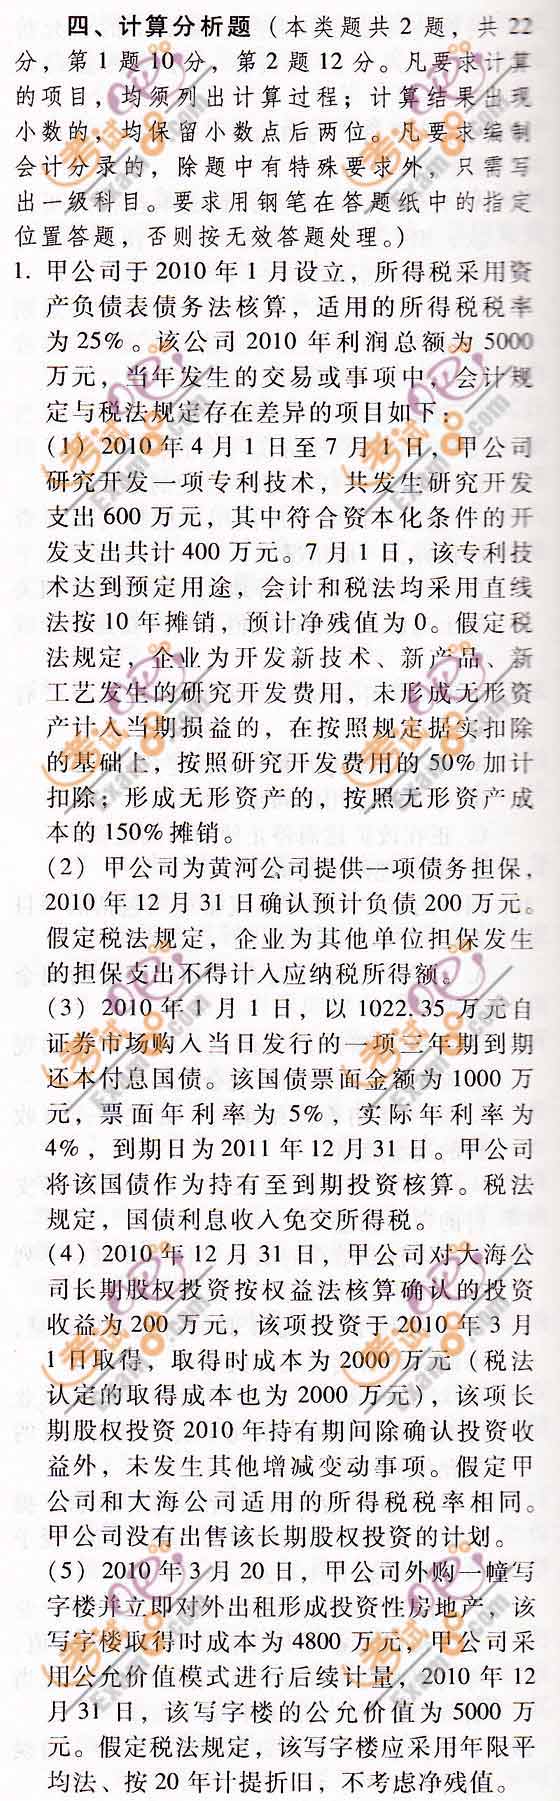 四、计算分析题（本类题共2题，共22
分，第1题10分，第2题12分。凡要求计算
的项目，均须列出计算过程；计算结果出现
小数的，均保留小数点后两位。凡要求编制
会计分录的，除题中有特殊要求外，只需写
出一级科目。要求用钢笔在答题纸中的指定
位置答题，否则按无效答题处理。）
1. 甲公司于2010年1月设立，所得税采用资
产负债表债务法核算，适用的所得税税率
为25%。该公司2010年利润总额为5000
万元，当年发生的交易或事项中，会计规
定与税法规定存在差异的项目如下：
（1）2010年4月1日至7月1日，甲公司
研究开发一项专利技术，共发生研究开发
支出600万元，其中符合资本化条件的开
发支出共计400万元。7月1日，该专利技
术达到预定用途，会计和税法均采用直线
法按10年摊销，预计净残值为0。假定税
法规定，企业为开发新技术、新产品、新
工艺发生的研究开发费用，未形成无形资
产计入当期损益的，在按照规定据实扣除
的基础上，按照研究开发费用的50%加计
扣除；形成无形资产的，按照无形资产成
本的150%摊销。
（2）甲公司为黄河公司提供一项债务担保，
2010年12月31日确认预计负债200万元。
假定税法规定，企业为其他单位担保发生
的担保支出不得计入应纳税所得额。
（3）2010年1月1日，以1022.35万元自
证券市场购入当日发行的一项三年期到期
还本付息国债。该国债票面金额为1000万
元，票面年利率为5%，实际年利率为
4%，到期日为2011年12月31日。甲公司
将该国债作为持有至到期投资核算。税法
规定，国债利息收入免交所得税。
（4）2010年12月31日，甲公司对大海公
司长期股权投资按权益法核算确认的投资
收益为200万元，该项投资于2010年3月
1日取得，取得时成本为2000万元（税法
认定的取得成本也为2000万元），该项长
期股权投资2010年持有期间除确认投资收
益外，未发生其他增减变动事项。假定甲
公司和大海公司适用的所得税税率相同。
甲公司没有出售该长期股权投资的计划。
（5）2010年3月20日，甲公司外购一幢写
字楼并立即对外出租形成投资性房地产，该
写字楼取得时成本为4800万元，甲公司采
用公允价值模式进行后续计量，2010年12
月31日，该写字楼的公允价值为5000万
元。假定税法规定，该写字楼应采用年限平
均法、按20年计提折旧，不考虑净残值。